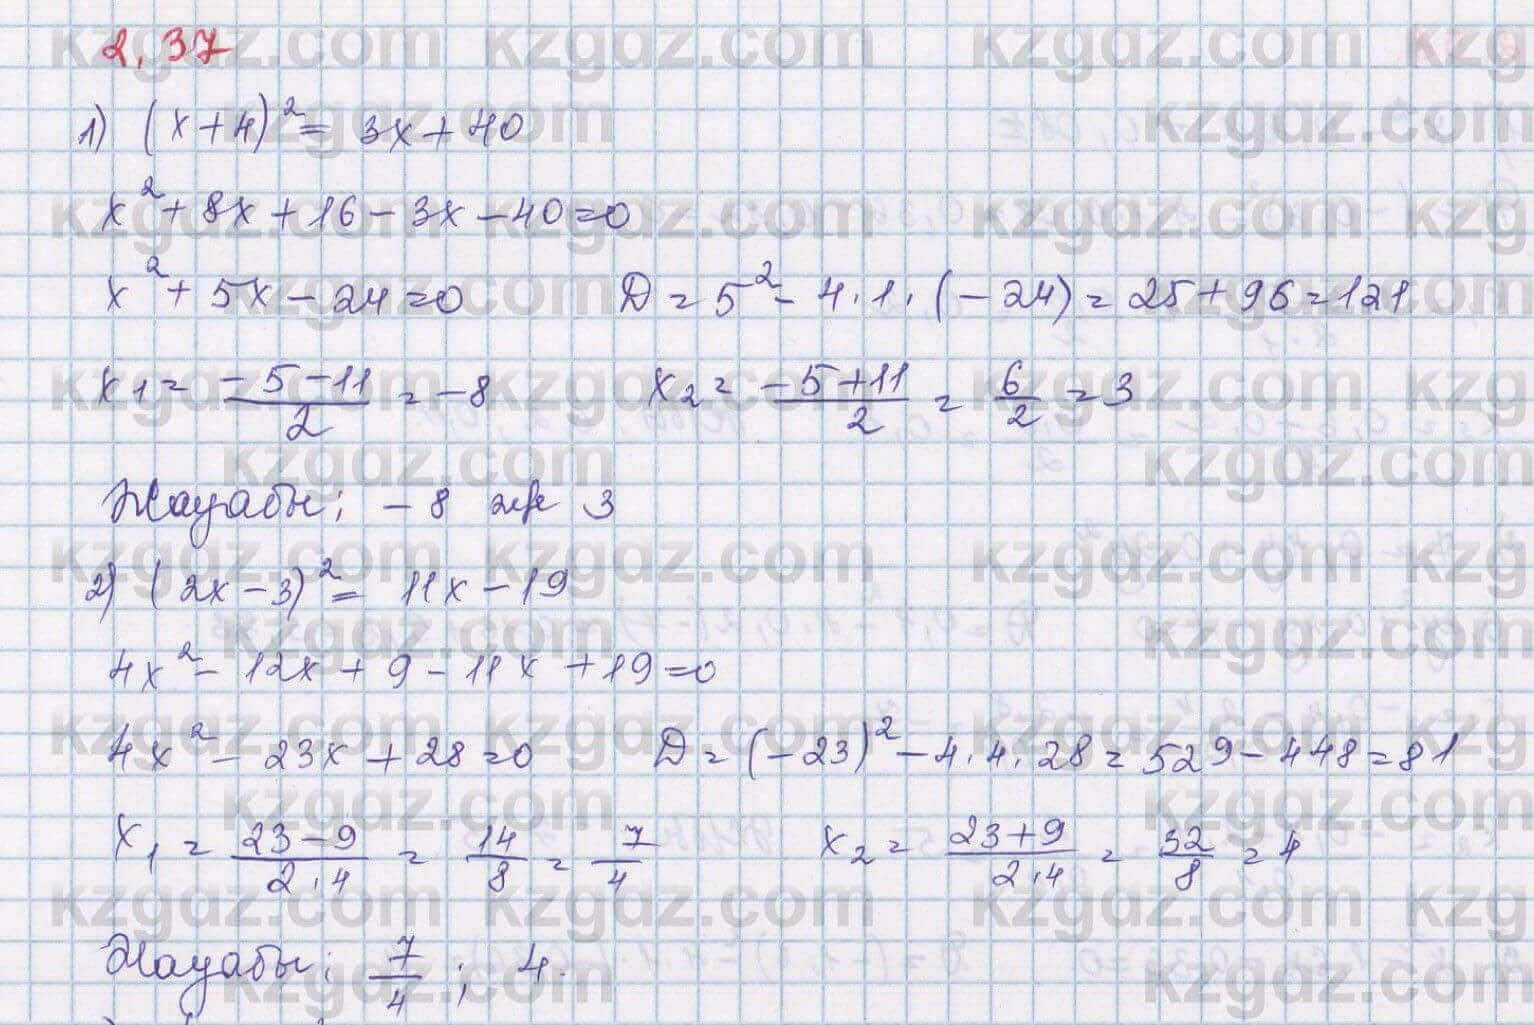 2.37
1) (x+4)² = 3x+40
x²+8x+16-3x-40=0
x²+5x-24=0 D=5²-4·1·(-24)=25+96=121
x₁ = (-5-11)/2 = -8 x₂ = (-5+11)/2 = 6/2 = 3
Жауабы: -8 және 3
2) (2x-3)² = 11x-19
4x²-12x+9-11x+19=0
4x²-23x+28=0 D=(-23)²-4·4·28=529-448=81
x₁ = (23-9)/(2·4) = 14/8 = 7/4 x₂ = (23+9)/(2·4) = 32/8 = 4
Жауабы: 7/4; 4.